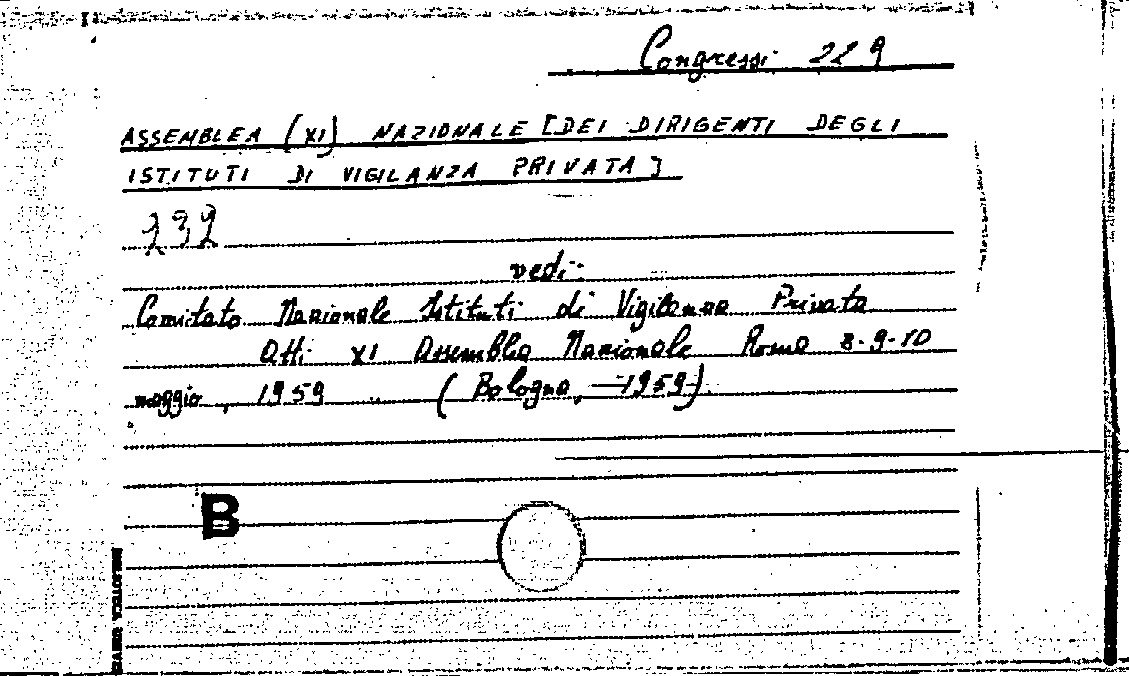 Congressi 229
ASSEMBLEA (XI) NAZIONALE [DEI DIRIGENTI DEGLI
ISTITUTI DI VIGILANZA PRIVATA]
232
vedi:
Comitato Nazionale Istituti di Vigilanza Privata
Atti XI Assemblea Nazionale Roma 8-9-10
maggio, 1959 (Bologna, 1959).
B
BIBLIOTECA